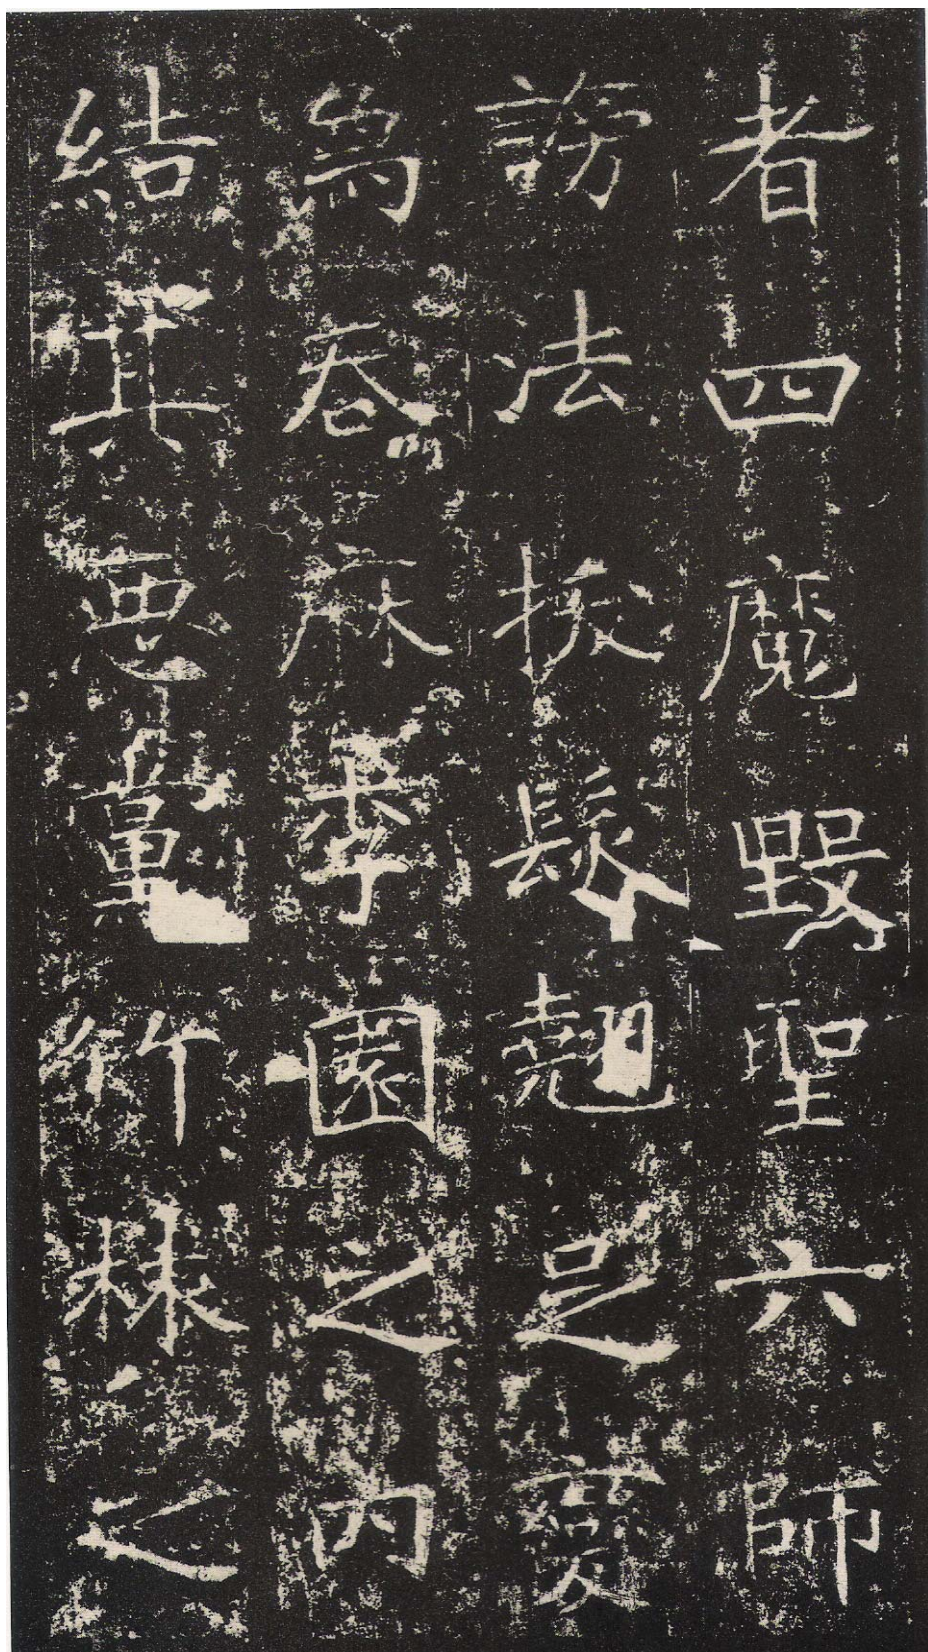 者四魔毀聖六師
謗法拔髮翹足變
象吞麻李園之內
結其惡黨竹林之